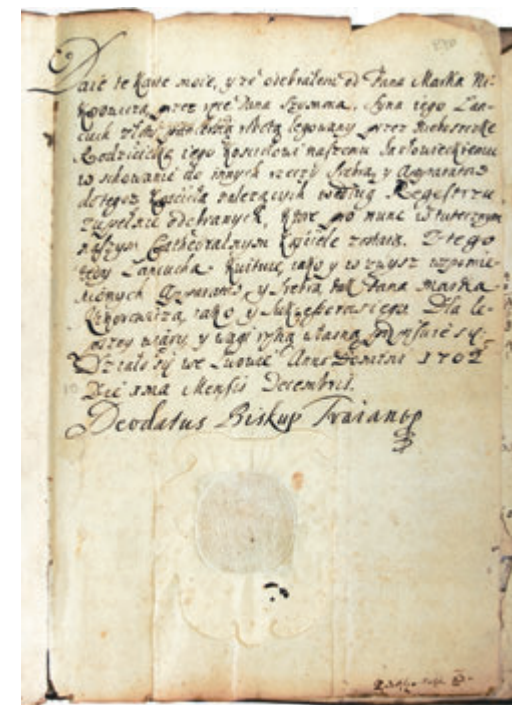 Daię tę kartę moię, yżem odebrałem od Pana Marka Ni-
przez Pana Szymona, Syna iego Łan-
cuch złoty robotą legowany przez Nieboszczkę
Rodzicielkę iego Kosciołowi naszemu Jazłowieckiemu
w schowanie do innych rzeczy Srebra, y Apparatow
do tegoż Koscioła należących według Regestrzu
zupełnie odebranych, ktore po nunc w tutecznym
naszym Cathedralnym Kosciele zostaią. Z tego
tedy Łancucha kwituię iako y w zwysz wspomie-
nionych Apparatow y Srebra tak Pana Marka
iako y Sukcessorow iego. Dla le-
pszey wiary, y wagi ręką własną podpisuię się.
Działo się we Lwowie Anno Domini 1702
Die 1ma Mensis Decembris.
Deodatus Biskup Traianop